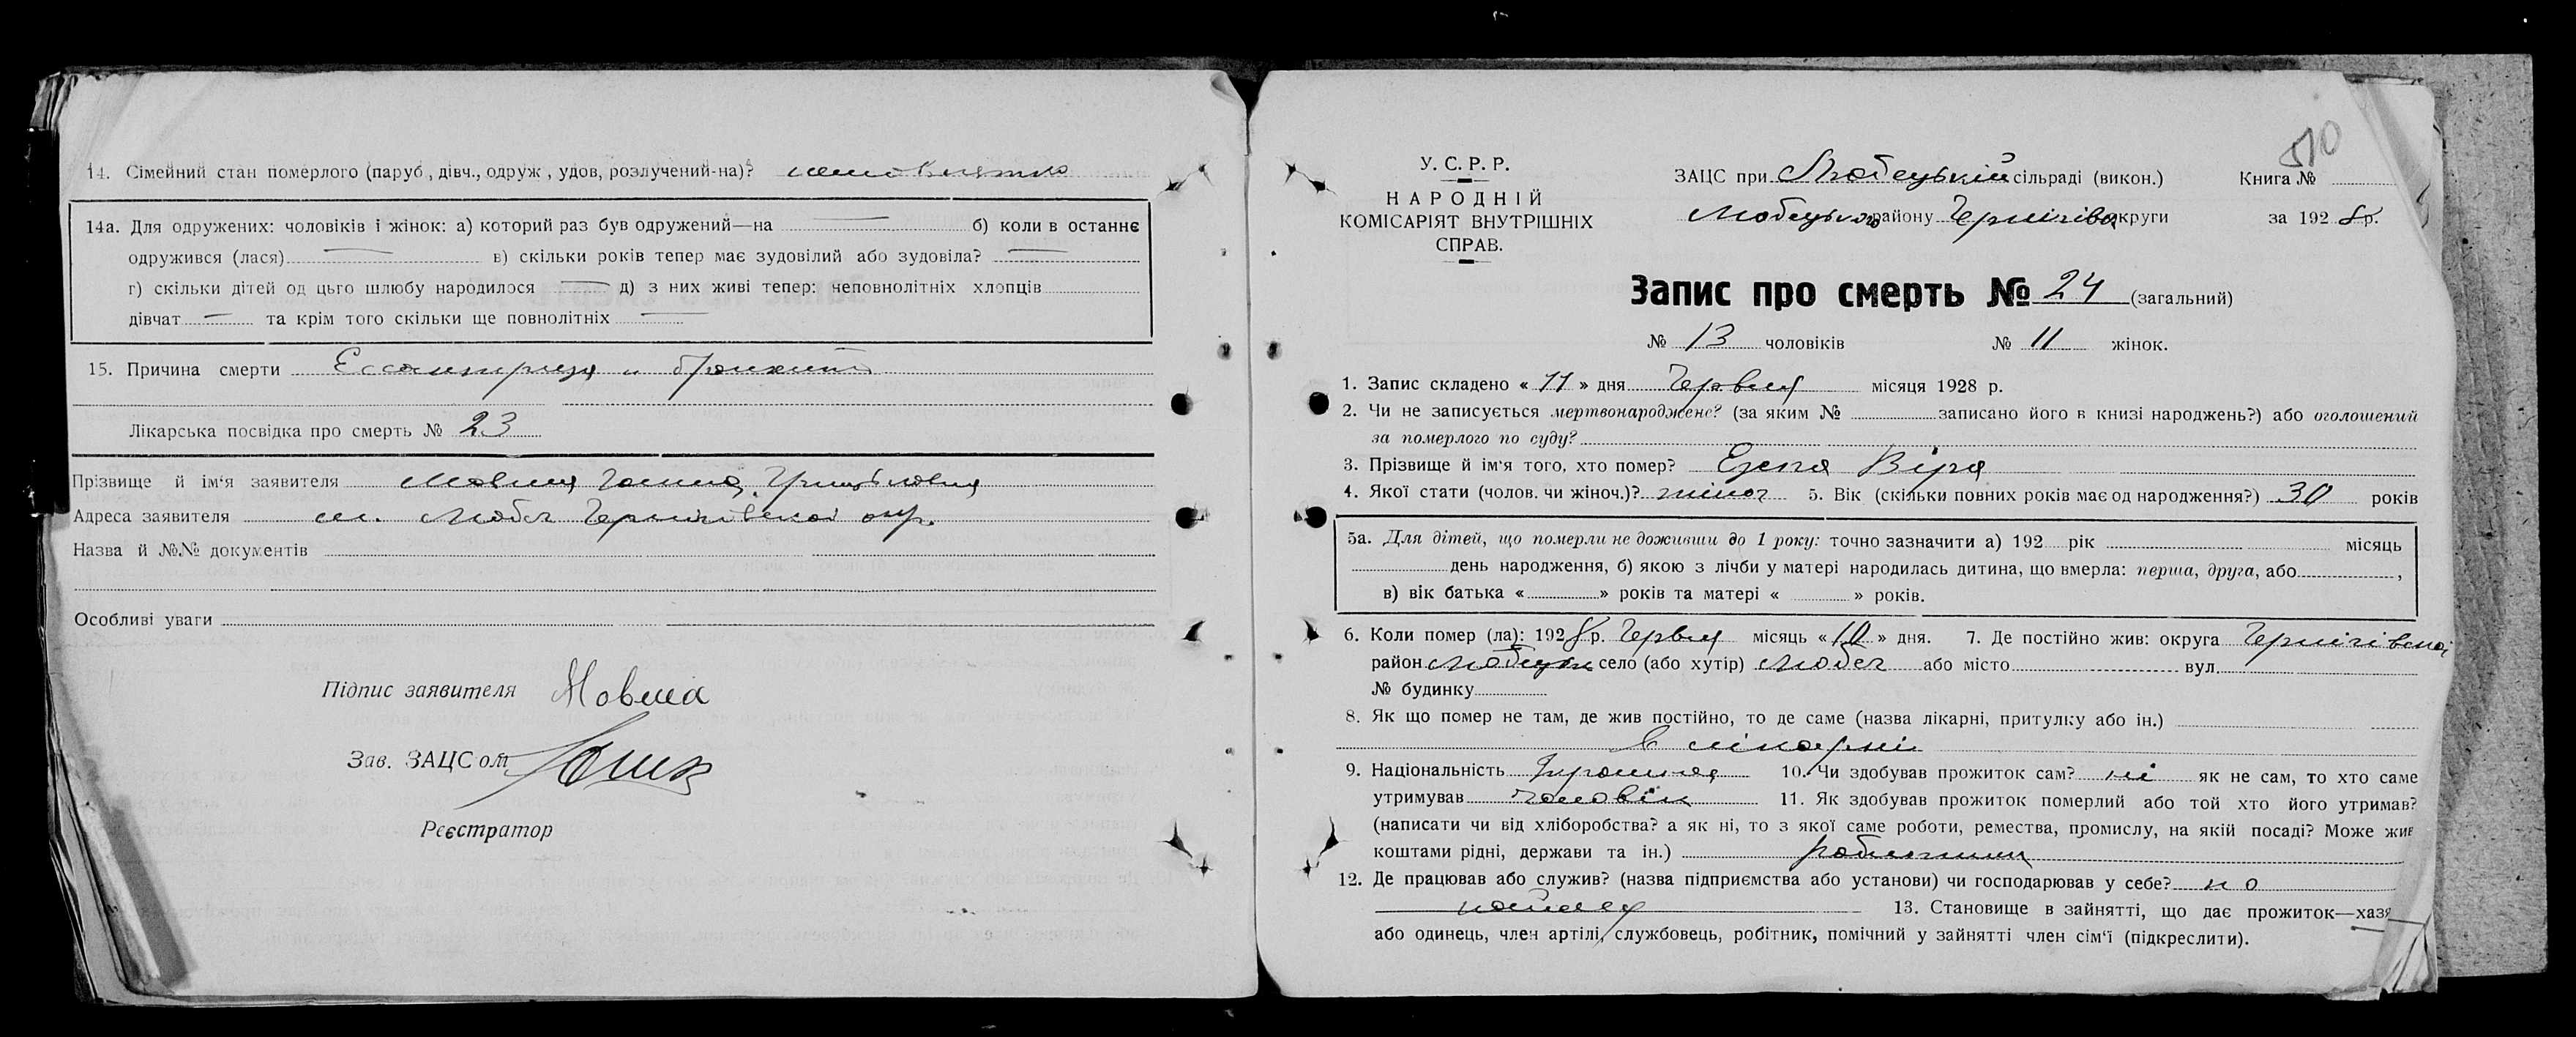 14. Сімейний стан померлого (паруб, дівч., одруж, удов, розлучений-на)?
14а. Для одружених: чоловіків і жінок: а) которий раз був одружений—на — б) коли в останнє
одружився (лася) — в) скільки років тепер має зудовілий або зудовіла? —
г) скільки дітей од цього шлюбу народилося — д) з них живі тепер: неповнолітніх хлопців
дівчат — та крім того скільки ще повнолітніх —
15. Причина смерти
Лікарська посвідка про смерть № 23
Прізвище й ім'я заявителя
Адреса заявителя м. Любеч Чернігівської окр.
Назва й №№ документів
Особливі уваги
Підпис заявителя
Зав. ЗАЦСом
Реєстратор
510
У. С. Р. Р.
НАРОДНІЙ
КОМІСАРІЯТ ВНУТРІШНІХ
СПРАВ.
ЗАЦС при Любецькій сільраді (викон.) Книга №
Любецького району Чернігівс округи за 1928 р.
Запис про смерть № 24 (загальний)
№ 13 чоловіків № 11 жінок.
1. Запис складено « 11 » дня Червня місяця 1928 р.
2. Чи не записується мертвонароджене? (за яким № записано його в книзі народжень?) або оголошений
за померлого по суду?
3. Прізвище й ім'я того, хто помер? Віра
4. Якої стати (чолов. чи жіноч.)? жіноч 5. Вік (скільки повних років має од народження?) 30 років
5а. Для дітей, що померли не доживши до 1 року: точно зазначити а) 192 рік місяць
день народження, б) якою з лічби у матері народилась дитина, що вмерла: перша, друга, або ,
в) вік батька « » років та матері « » років.
6. Коли помер (ла): 1928 р. Червня місяць « 10 » дня. 7. Де постійно жив: округа Чернігівської
район Любецьк село (або хутір) Любеч або місто вул.
№ будинку
8. Як що помер не там, де жив постійно, то де саме (назва лікарні, притулку або ін.)
в лікарні
9. Національність 10. Чи здобував прожиток сам? ні як не сам, то хто саме
утримував чоловік 11. Як здобував прожиток померлий або той хто його утримав?
(написати чи від хліборобства? а як ні, то з якої саме роботи, ремества, промислу, на якій посаді? Може жив
коштами рідні, держави та ін.) робітник
12. Де працював або служив? (назва підприємства або установи) чи господарював у себе? по
найму 13. Становище в зайнятті, що дає прожиток—хазя
або одинець, член артілі, службовець, робітник, помічний у зайнятті член сім'ї (підкреслити).